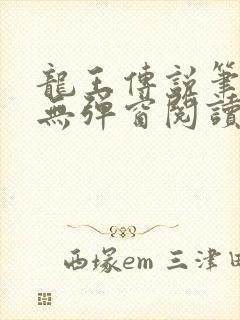 龍王傳說筆
無彈窗閱讀
西塚em 三津田